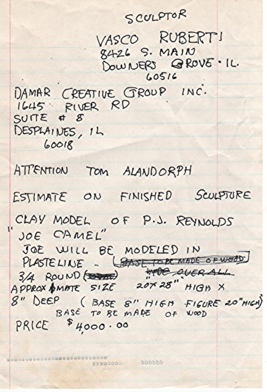 SCULPTOR
VASCO RUBERTI
8426 S. MAIN
DOWNERS GROVE - IL
60516
DAMAR CREATIVE GROUP INC.
1645 RIVER RD
SUITE # 8
DESPLAINES, IL
60018
ATTENTION TOM ALANDORPH
ESTIMATE ON FINISHED SCULPTURE
CLAY MODEL OF P.J. REYNOLDS
"JOE CAMEL"
JOE WILL BE MODELED IN
PLASTELINE - BASE TO BE MADE OF WOOD
3/4 ROUND OVER ALL
APPROXIMATE SIZE 20 X 28" HIGH X
8" DEEP (BASE 8" HIGH FIGURE 20" HIGH)
BASE TO BE MADE OF WOOD
PRICE $4,000.00